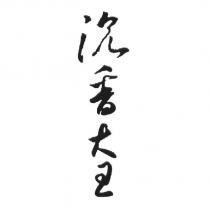 沉香大王